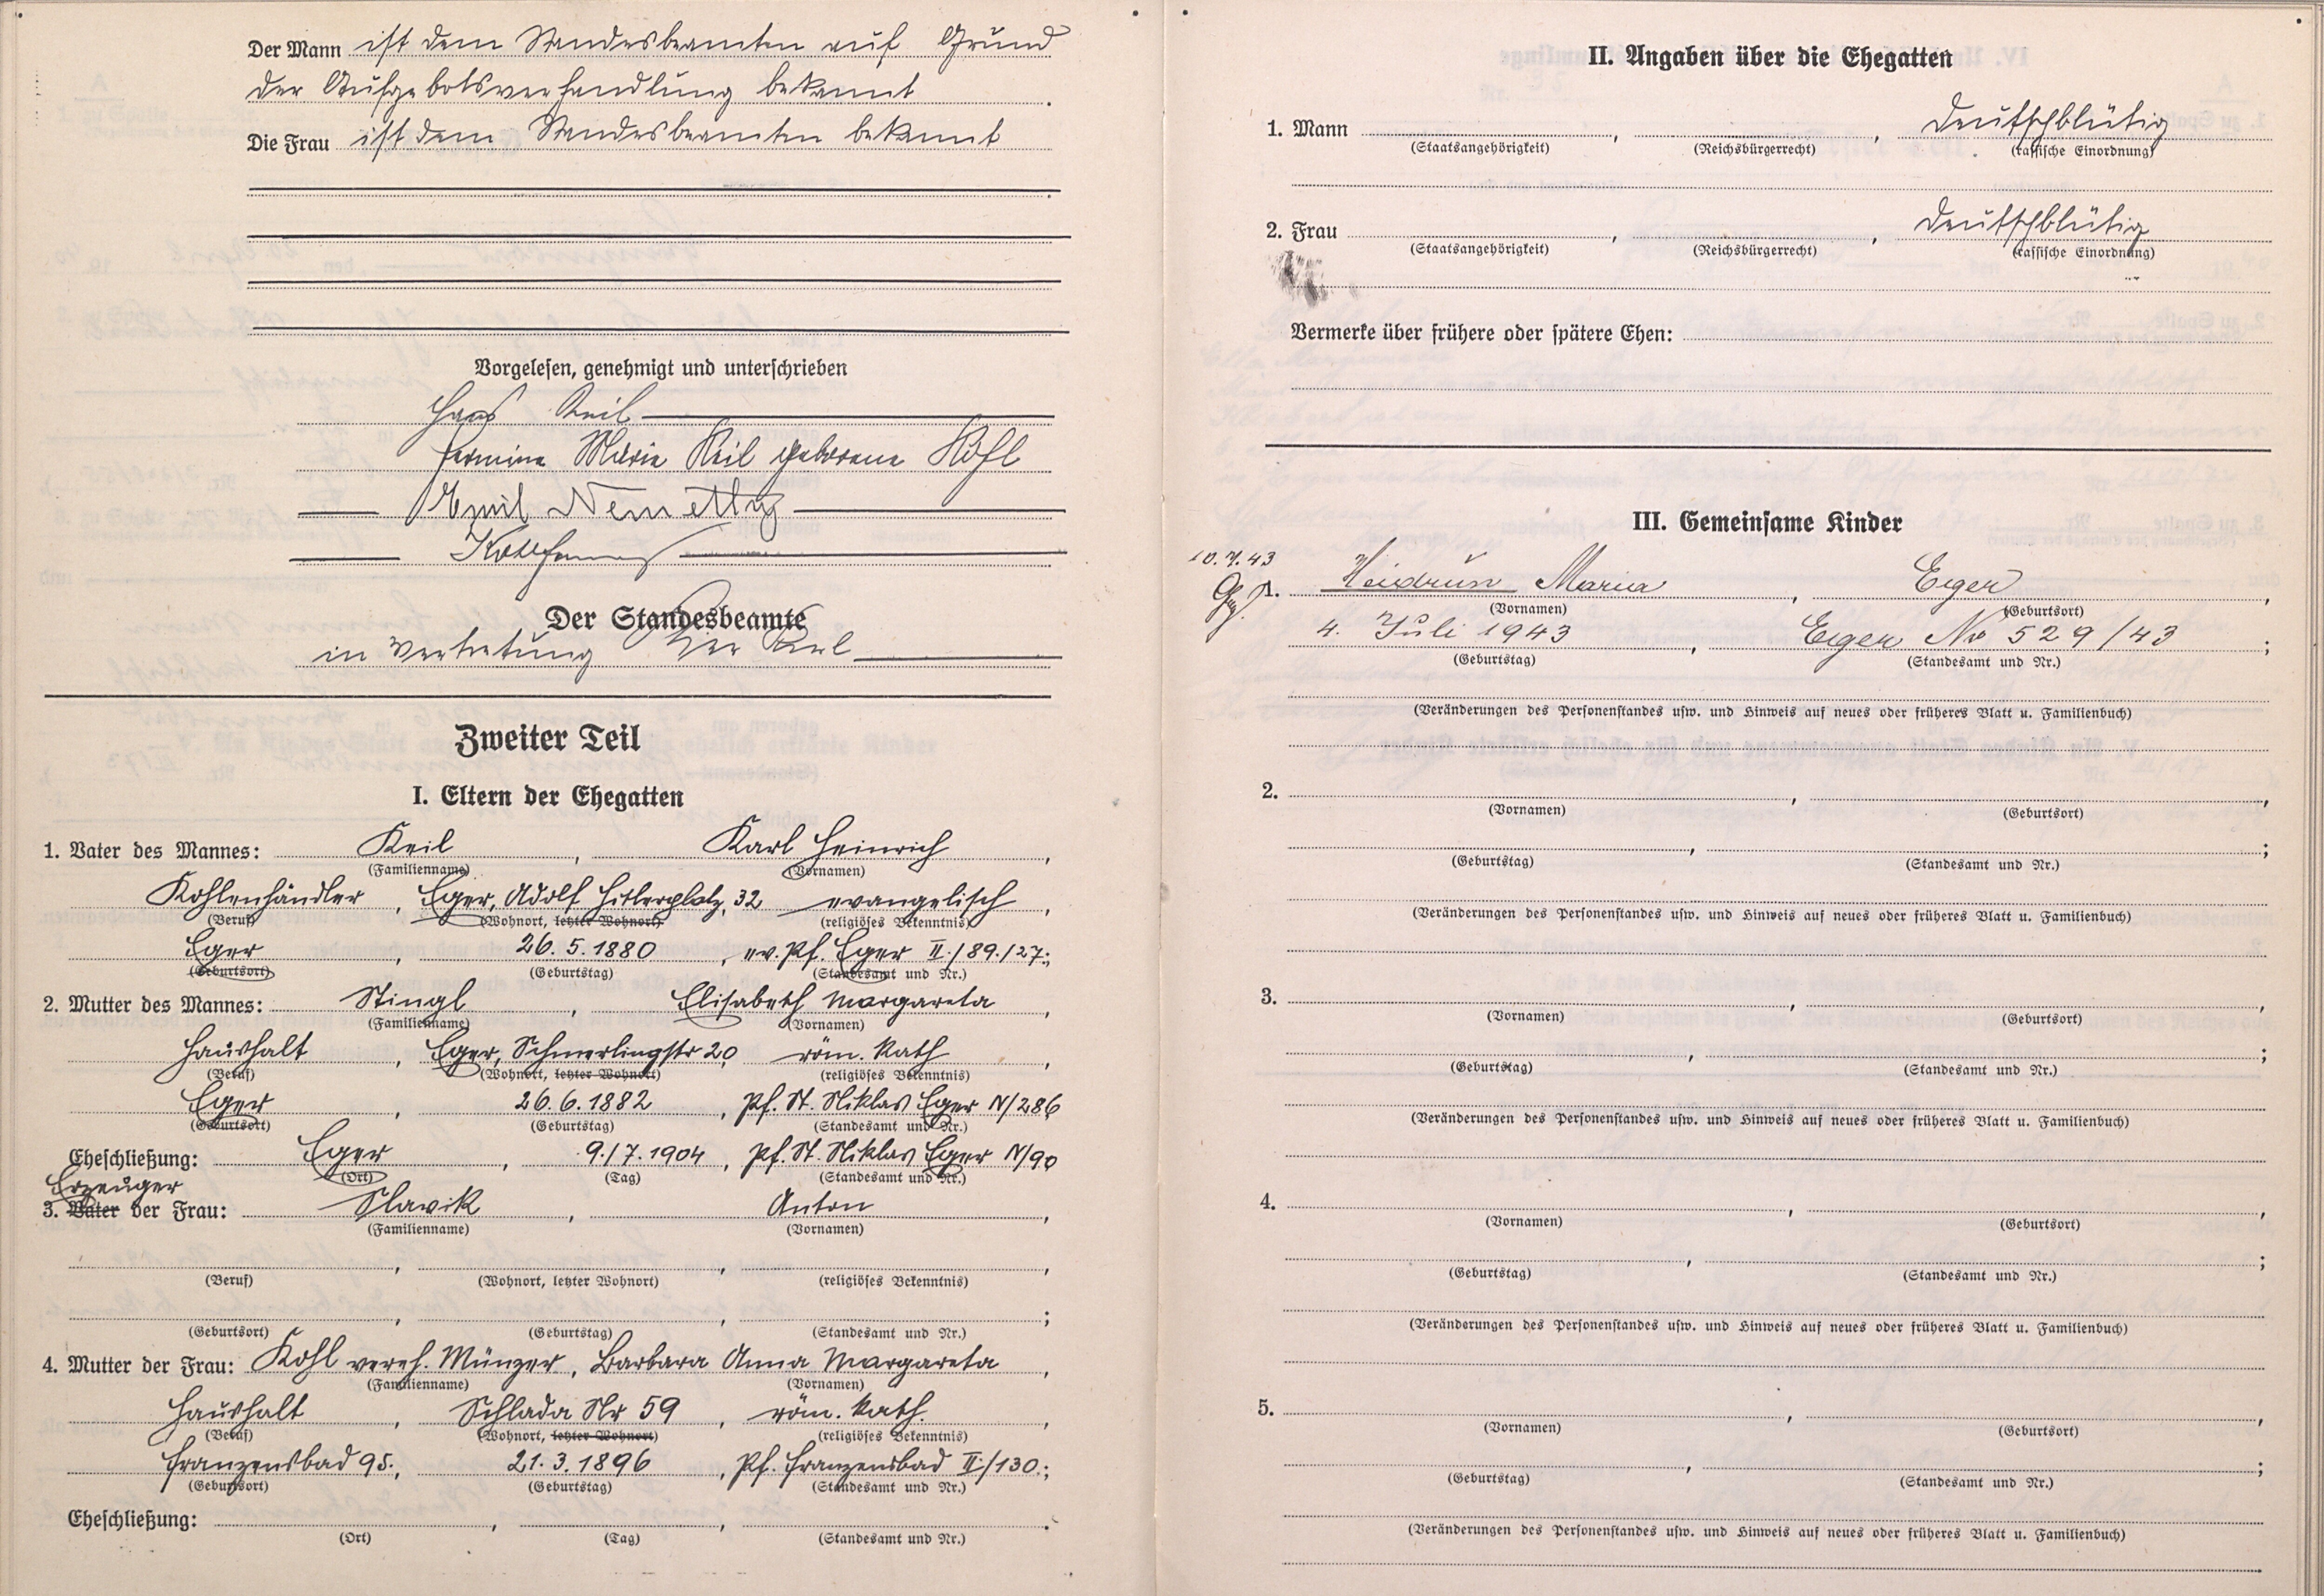 Der Mann ist dem Standesbeamten auf Grund
der Aufgebotsverhandlung bekannt.
Die Frau ist dem Standesbeamten bekannt
Vorgelesen, genehmigt und unterschrieben
Hans Keil
Hermine Maria Keil geborene Kohl
Emil
Der Standesbeamte
in Vertretung
Zweiter Teil
I. Eltern der Ehegatten
1. Vater des Mannes: Keil, Karl Heinrich,
(Familienname) (Vornamen)
Kohlenhändler, Eger, Adolf Hitlerplatz, 32 evangelisch,
(Beruf) (Wohnort, letzter Wohnort) (religiöses Bekenntnis)
Eger, 26.5.1880, ev. Pf. Eger II./89./27.;
(Geburtsort) (Geburtstag) (Standesamt und Nr.)
2. Mutter des Mannes: Stingl, Elisabeth Margareta,
(Familienname) (Vornamen)
Haushalt, Eger, Schmerlingstr 20, röm. kath,
(Beruf) (Wohnort, letzter Wohnort) (religiöses Bekenntnis)
Eger, 26.6.1882, Pf. St. Niklas Eger N/286
(Geburtsort) (Geburtstag) (Standesamt und Nr.)
Eheschließung: Eger, 9./7.1904, Pf. St. Niklas Eger N/90
(Ort) (Tag) (Standesamt und Nr.)
Erzeuger
3. Vater der Frau: Slavik, Anton,
(Familienname) (Vornamen)
(Beruf) (Wohnort, letzter Wohnort) (religiöses Bekenntnis)
(Geburtsort) (Geburtstag) (Standesamt und Nr.)
4. Mutter der Frau: Kohl vereh. Münzer, Barbara Anna Margareta,
(Familienname) (Vornamen)
Haushalt, Schlada Nr 59, röm. kath.,
(Beruf) (Wohnort, letzter Wohnort) (religiöses Bekenntnis)
Franzensbad 95., 21.3.1896, Pf. Franzensbad II/130.;
(Geburtsort) (Geburtstag) (Standesamt und Nr.)
Eheschließung:
(Ort) (Tag) (Standesamt und Nr.)
II. Angaben über die Ehegatten
1. Mann , , deutschblütig
(Staatsangehörigkeit) (Reichsbürgerrecht) (rassische Einordnung)
2. Frau , , deutschblütig
(Staatsangehörigkeit) (Reichsbürgerrecht) (rassische Einordnung)
Vermerke über frühere oder spätere Ehen:
III. Gemeinsame Kinder
10.7.43
1. Heidrun Maria, Eger,
(Vornamen) (Geburtsort)
4. Juli 1943, Eger No 529/43;
(Geburtstag) (Standesamt und Nr.)
(Veränderungen des Personenstandes usw. und Hinweis auf neues oder früheres Blatt u. Familienbuch)
2.
(Vornamen) (Geburtsort)
(Geburtstag) (Standesamt und Nr.)
(Veränderungen des Personenstandes usw. und Hinweis auf neues oder früheres Blatt u. Familienbuch)
3.
(Vornamen) (Geburtsort)
(Geburtstag) (Standesamt und Nr.)
(Veränderungen des Personenstandes usw. und Hinweis auf neues oder früheres Blatt u. Familienbuch)
4.
(Vornamen) (Geburtsort)
(Geburtstag) (Standesamt und Nr.)
(Veränderungen des Personenstandes usw. und Hinweis auf neues oder früheres Blatt u. Familienbuch)
5.
(Vornamen) (Geburtsort)
(Geburtstag) (Standesamt und Nr.)
(Veränderungen des Personenstandes usw. und Hinweis auf neues oder früheres Blatt u. Familienbuch)